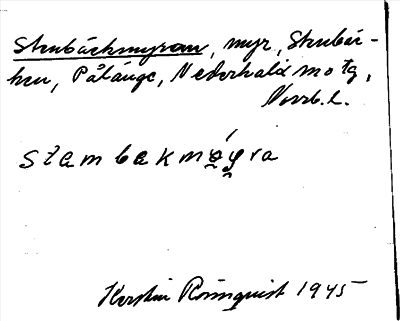 Stenbäckmyran, myr, Stenbäc-
ken, Pålänge, Nederkalix sn o tg,
Norrb. l.
stembakmóyra
Kerstin Rönnquist 1945